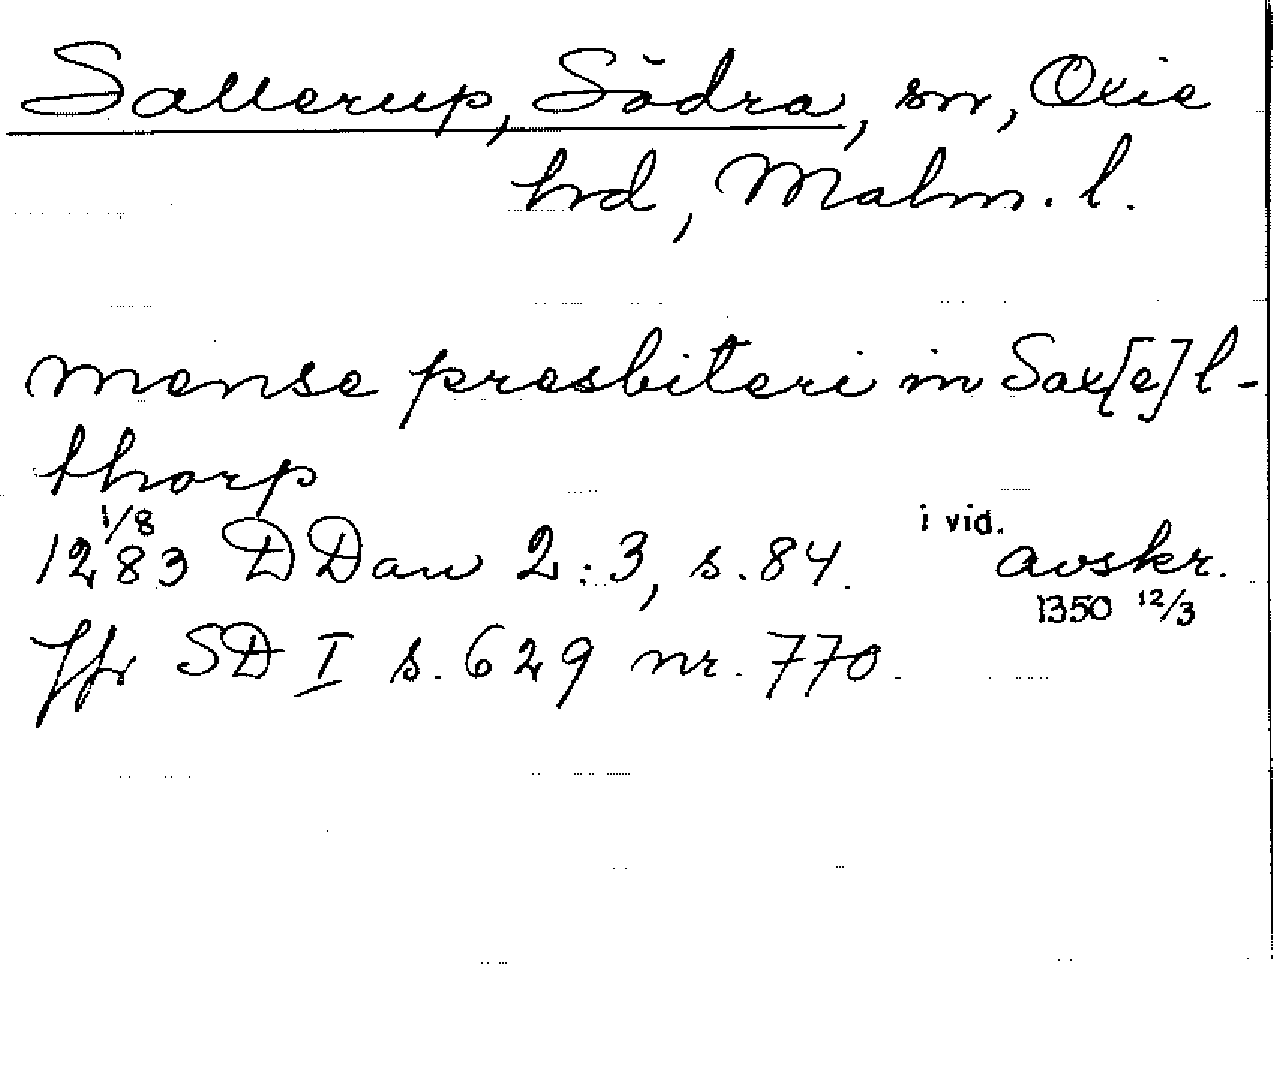 Sallerup, Södra, sn, Oxie
hd, Malm. l.
mense presbiteri in Sax[e]l-
thorp
1283 1/8 DDan 2:3, s. 84. i vid. avskr.
1350 12/3
Jfr SD I s. 629 nr. 770.